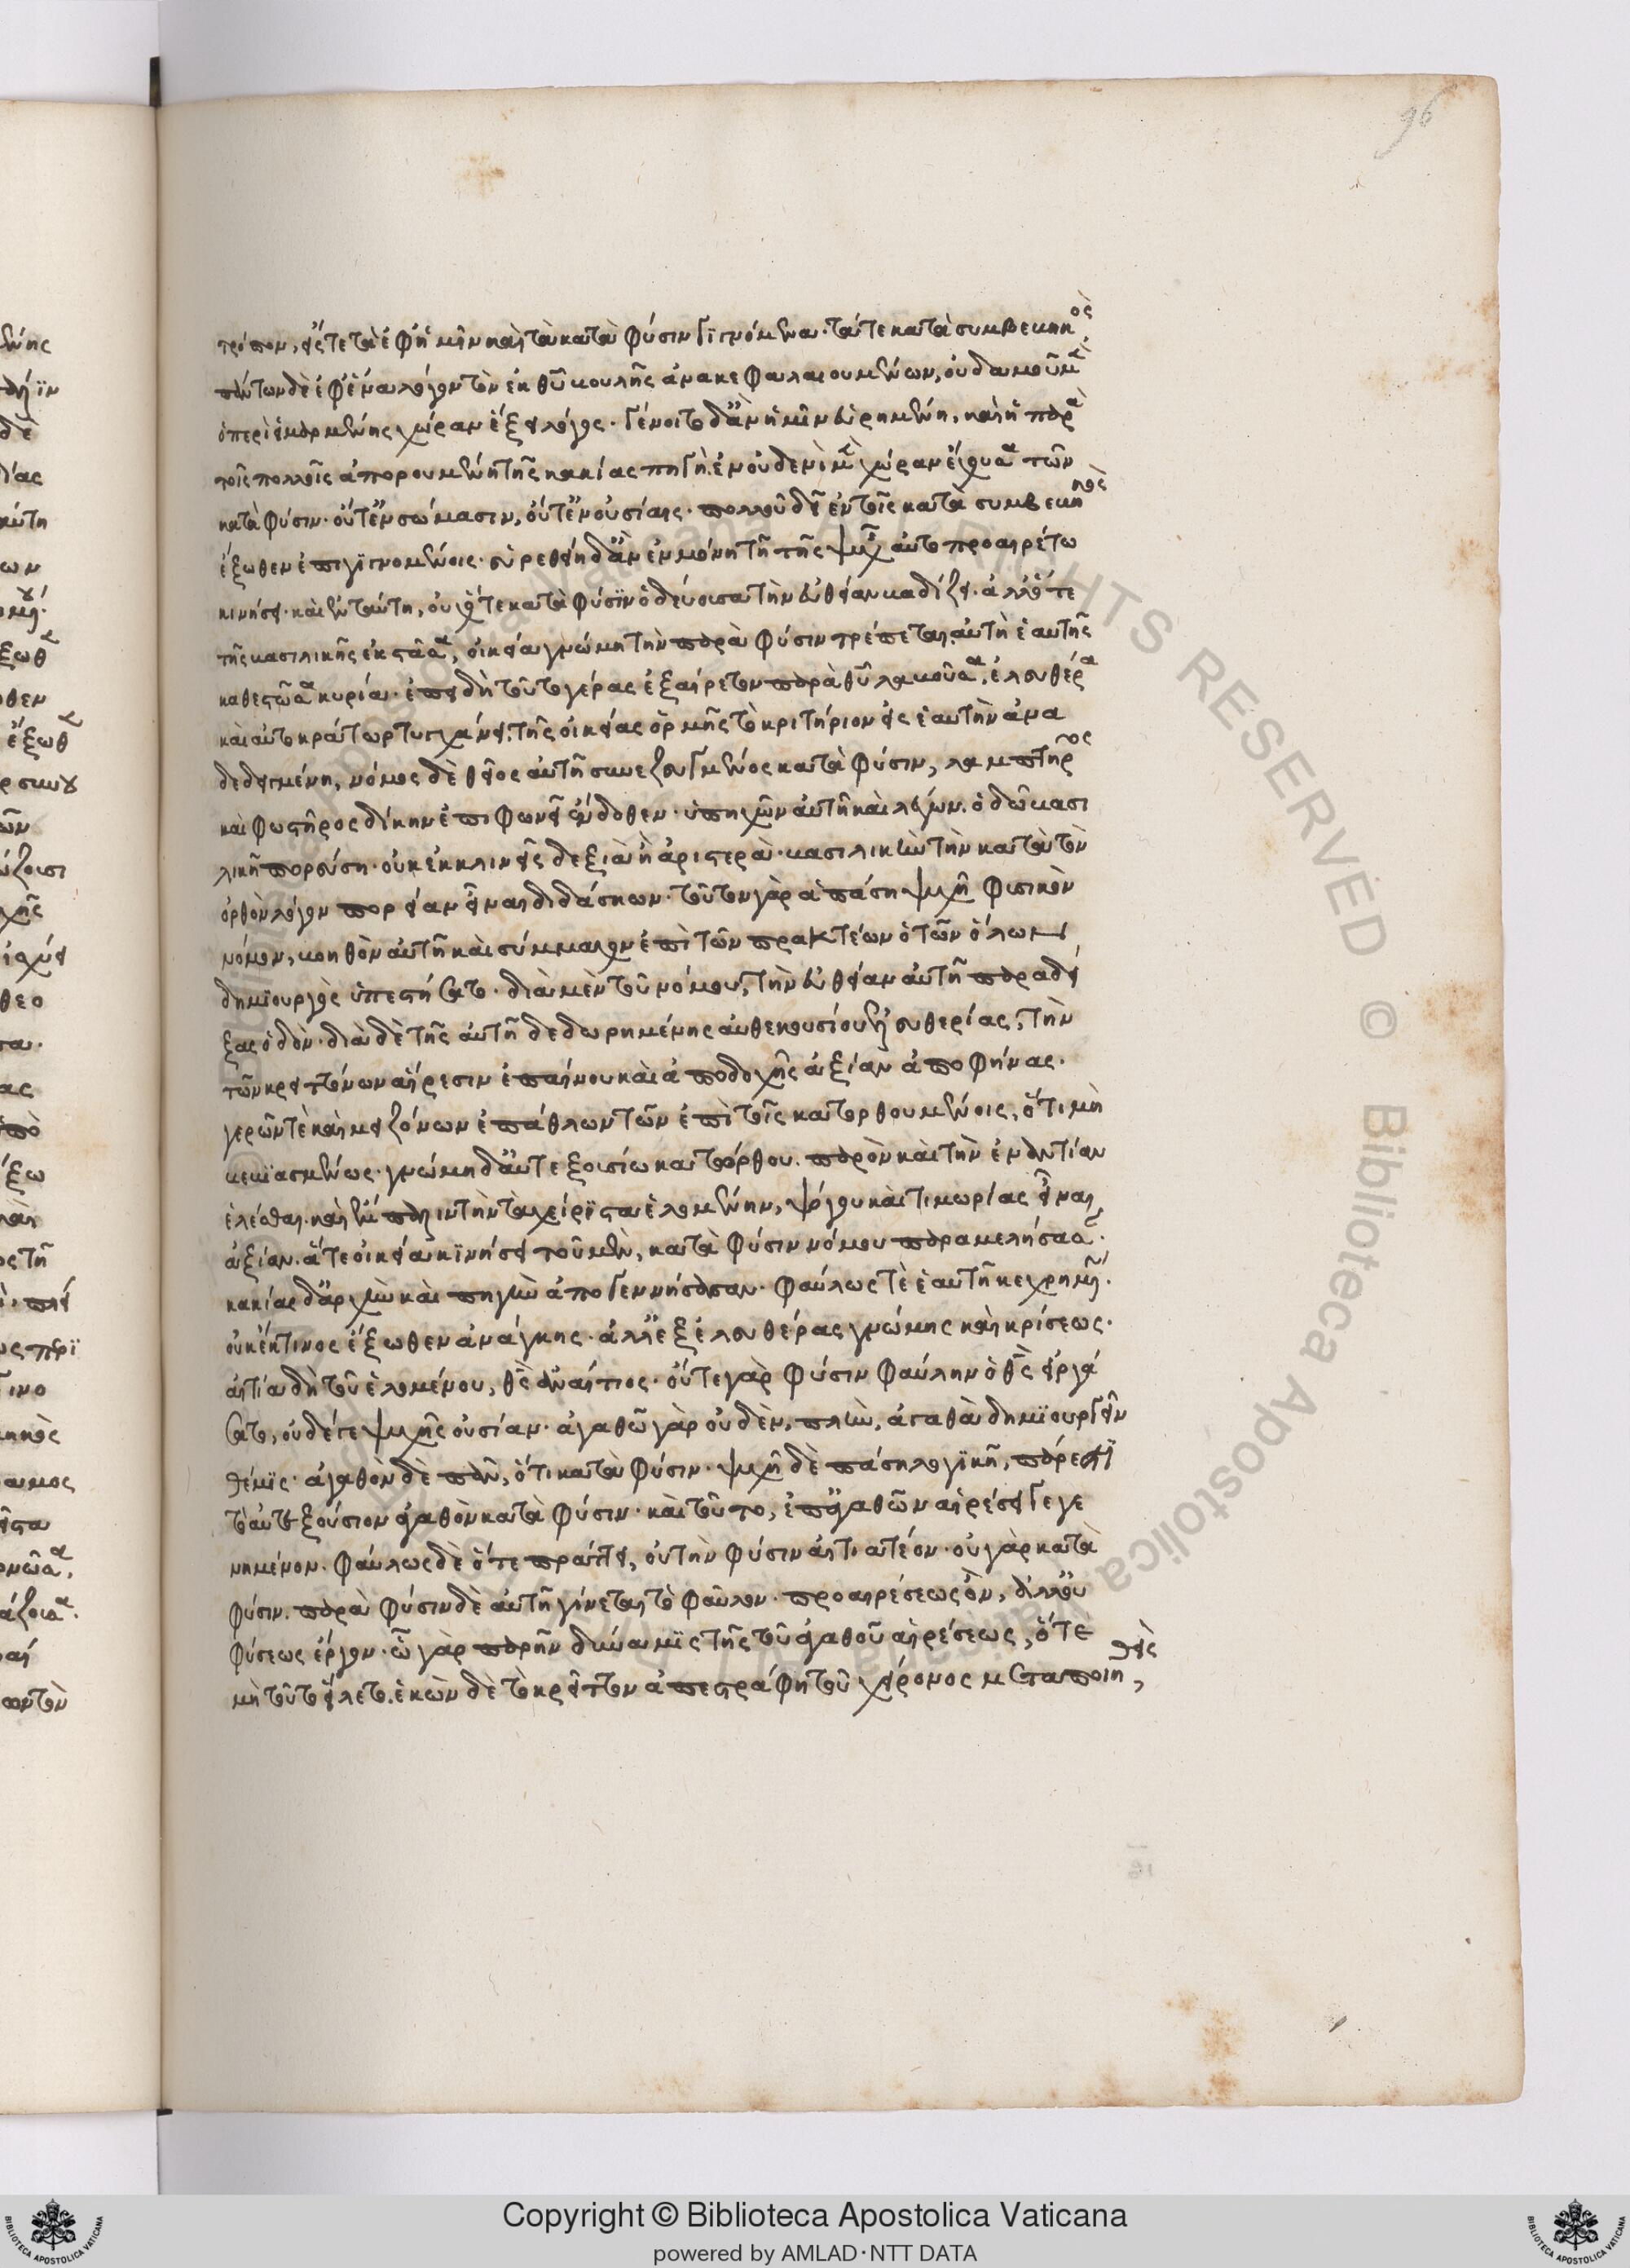 96
τρόπον, εἴς τε τὰ ἐφ' ἡμῖν καὶ τὰ κατὰ φύσιν γιγνόμενα· τά τε κατὰ συμβεβηκός.
πάντων δὲ ἐφ' ἕνα λόγον τὸν ἐκ θεοῦ βουλῆς ἀνακεφαλαιουμένων, οὐδαμοῦ μὲν
ὁ περὶ εἱμαρμένης χώραν ἕξει λόγος. γένοιτο δ' ἂν ἡμῖν εὑρημένη, καὶ ἡ παρὰ
τοῖς πολλοῖς ἀπορουμένη τῆς κακίας πηγή. ἐν οὐδενὶ μὲν χώραν ἔχουσα τῶν
κατὰ φύσιν· οὔτ' ἐν σώμασιν, οὔτ' ἐν οὐσίαις· πολλοῦ δεῖ ἐν τοῖς κατὰ συμβεβηκὸς
ἔξωθεν ἐπιγιγνομένοις· εὑρεθείη δ' ἂν ἐν μόνῃ τῇ τῆς ψυχῆς αὐτοπροαιρέτῳ
κινήσει· καὶ ἐν ταύτῃ, οὐχ ὅτε κατὰ φύσιν ὁδεύουσα τὴν εὐθεῖαν βαδίζει· ἀλλ' ὅτε
τῆς βασιλικῆς ἐκστᾶσα, οἰκείᾳ γνώμῃ τὴν παρὰ φύσιν τρέπεται, αὐτὴ ἑαυτῆς
καθεστῶσα κυρία· ἐπειδὴ τοῦτο γέρας ἐξαίρετον παρὰ θεοῦ λαβοῦσα, ἐλευθέρα
καὶ αὐτοκράτωρ τυγχάνει, τῆς οἰκείας ὁρμῆς τὸ κριτήριον εἰς ἑαυτὴν ἀνα
δεδειγμένη, νόμος δὲ θεῖος αὐτῇ συνεζευγμένος κατὰ φύσιν, λαμπτῆρος
καὶ φωστῆρος δίκην ἐπιφωνεῖ ἔνδοθεν· ὑπηχῶν αὐτῇ καὶ λέγων. ὁδῷ βασι
λικῇ πορεύσῃ· οὐκ ἐκκλινεῖς δεξιὰ ἢ ἀριστερά· βασιλικὴν τὴν κατὰ τὸν
ὀρθὸν λόγον πορείαν εἶναι διδάσκων· τοῦτον γὰρ ἁπάσῃ ψυχῇ φυσικὸν
νόμον, βοηθὸν αὐτῇ καὶ σύμμαχον ἐπὶ τῶν πρακτέων ὁ τῶν ὅλων
δημιουργὸς ὑπεστήσατο· διὰ μὲν τοῦ νόμου, τὴν εὐθεῖαν αὐτῇ παραδεί
ξας ὁδόν· διὰ δὲ τῆς αὐτῇ δεδωρημένης αὐθεκουσίου ἐλευθερίας, τὴν
τῶν κρειττόνων αἵρεσιν ἐπαίνου καὶ ἀποδοχῆς ἀξίαν ἀποφήνας.
γερῶν τὲ καὶ μειζόνων ἐπάθλων τῶν ἐπὶ τοῖς κατορθουμένοις, ὅτι μὴ
βεβιασμένως· γνώμῃ δ' αὐτεξουσίῳ κατόρθου. παρὸν καὶ τὴν ἐναντίαν
ἑλέσθαι. καὶ ἔμπαλιν τὴν τὰ χείριστα ἑλομένην, ψόγου καὶ τιμωρίας εἶναι
ἀξίαν. ἅτε οἰκείᾳ κινήσει τοῦ μὲν, κατὰ φύσιν νόμου παραμελήσασαν.
κακίας δ' ἀρχὴν καὶ πηγὴν ἀπογεννήσασαν. φαύλως τὲ ἑαυτῇ κεχρημένην.
οὐκ ἔκ τινος ἔξωθεν ἀνάγκης. ἀλλ' ἐξ ἐλευθέρας γνώμης καὶ κρίσεως.
αἰτία δὴ τοῦ ἑλομένου, θεὸς ἀναίτιος· οὔτε γὰρ φύσιν φαύλην ὁ θεὸς εἰργά
σατο, οὐδέ γε ψυχῆς οὐσίαν· ἀγαθῷ γὰρ οὐδὲν, πλὴν, ἀγαθὰ δημιουργεῖν
θέμις· ἀγαθὸν δὲ πᾶν, ὅτι κατὰ φύσιν· ψυχῇ δὲ πάσῃ λογικῇ, πάρεστι
τὸ αὐτεξούσιον ἀγαθὸν κατὰ φύσιν· καὶ τοῦτο, ἐπ' ἀγαθῶν αἱρέσει γεγε
νημένον. φαύλως δὲ ὅτε πράττει, οὐ τὴν φύσιν αἰτιατέον· οὐ γὰρ κατὰ
φύσιν. παρὰ φύσιν δὲ αὐτῇ γίνεται τὸ φαῦλον· προαιρέσεως ὂν, ἀλλ' οὐ
φύσεως ἔργον· ᾧ γὰρ παρῆν δύναμις τῆς τοῦ ἀγαθοῦ αἱρέσεως, ὅτε
μὴ τοῦτο εἵλετο, ἑκὼν δὲ τὸ κρεῖττον ἀπεστράφη τοῦ χείρονος μεταποιηθεὶς,
RIGHTS RESERVED © Biblioteca Apostolica Vaticana
Copyright © Biblioteca Apostolica Vaticana
powered by AMLAD·NTT DATA
BIBLIOTECA APOSTOLICA VATICANA
BIBLIOTECA APOSTOLICA VATICANA